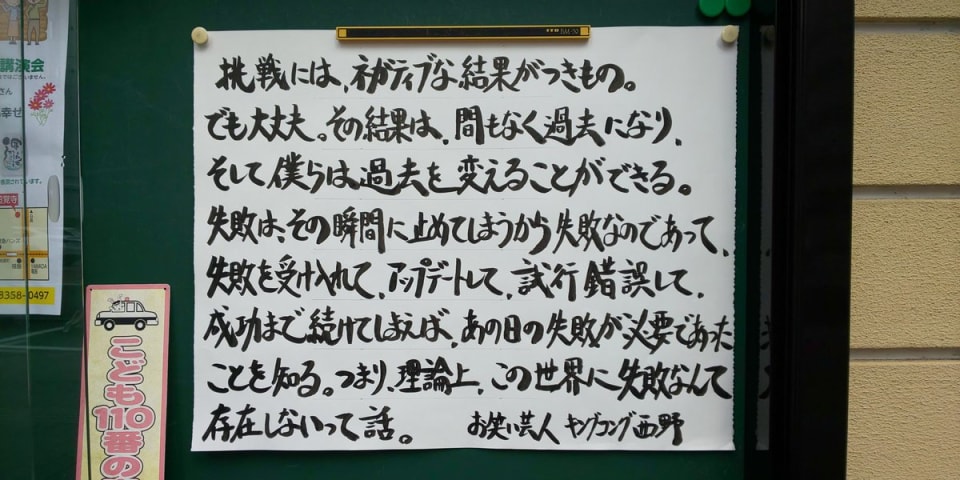 挑戦には、ネガティブな結果がつきもの。
でも大丈夫。その結果は、間もなく過去になり、
そして僕らは過去を変えることができる。
失敗は、その瞬間に止めてしまうから失敗なのであって、
失敗を受け入れて、アップデートして、試行錯誤して、
成功まで続けてしまえば、あの日の失敗が必要であった
ことを知る。つまり、理論上、この世界に失敗なんて
存在しないって話。
お笑い芸人 キングコング西野
講演会
幸せ
3358-0497
こども110番の